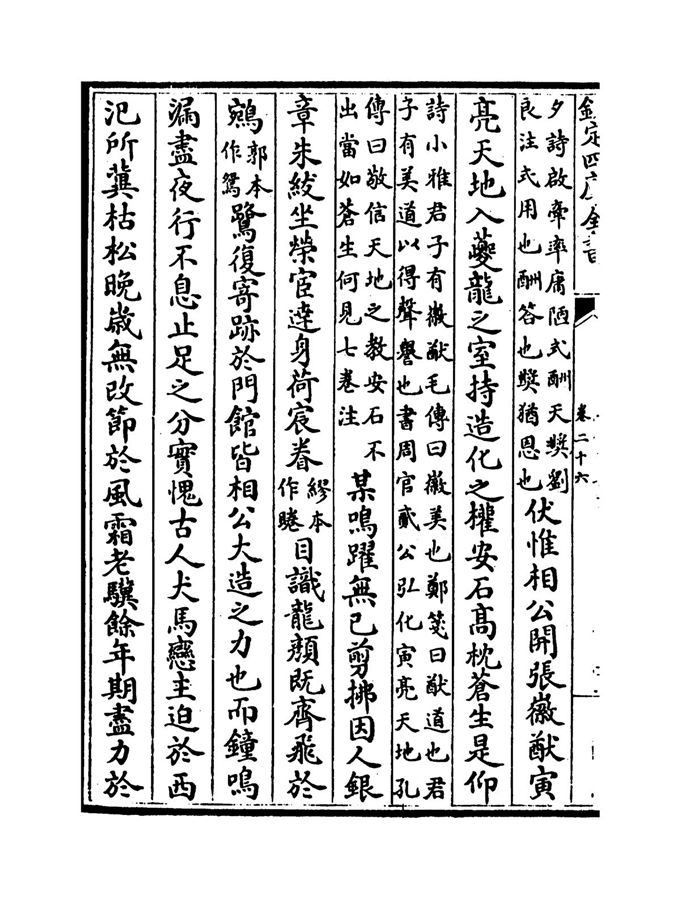 欽定四庫全書
卷二十六
夕詩啟牽率庸陋式酬天奬劉
良注式用也酬答也奬猶恩也
伏惟相公開張徽猷寅
亮天地入夔龍之室持造化之權安石高枕蒼生是仰
詩小雅君子有徽猷毛傳曰徽美也鄭箋曰猷道也君
子有美道以得聲譽也書周官貳公弘化寅亮天地孔
傳曰敬信天地之教安石不
出當如蒼生何見七卷注
某鳴躍無已剪拂因人銀
章朱紱坐榮宦達身荷宸眷
繆本
作睠
目識龍顔既齊飛於
鵷
郭本
作鴛
鷺復寄跡於門館皆相公大造之力也而鐘鳴
漏盡夜行不息止足之分實愧古人犬馬戀主迫於西
汜所冀枯松晚歲無改節於風霜老驥餘年期盡力於